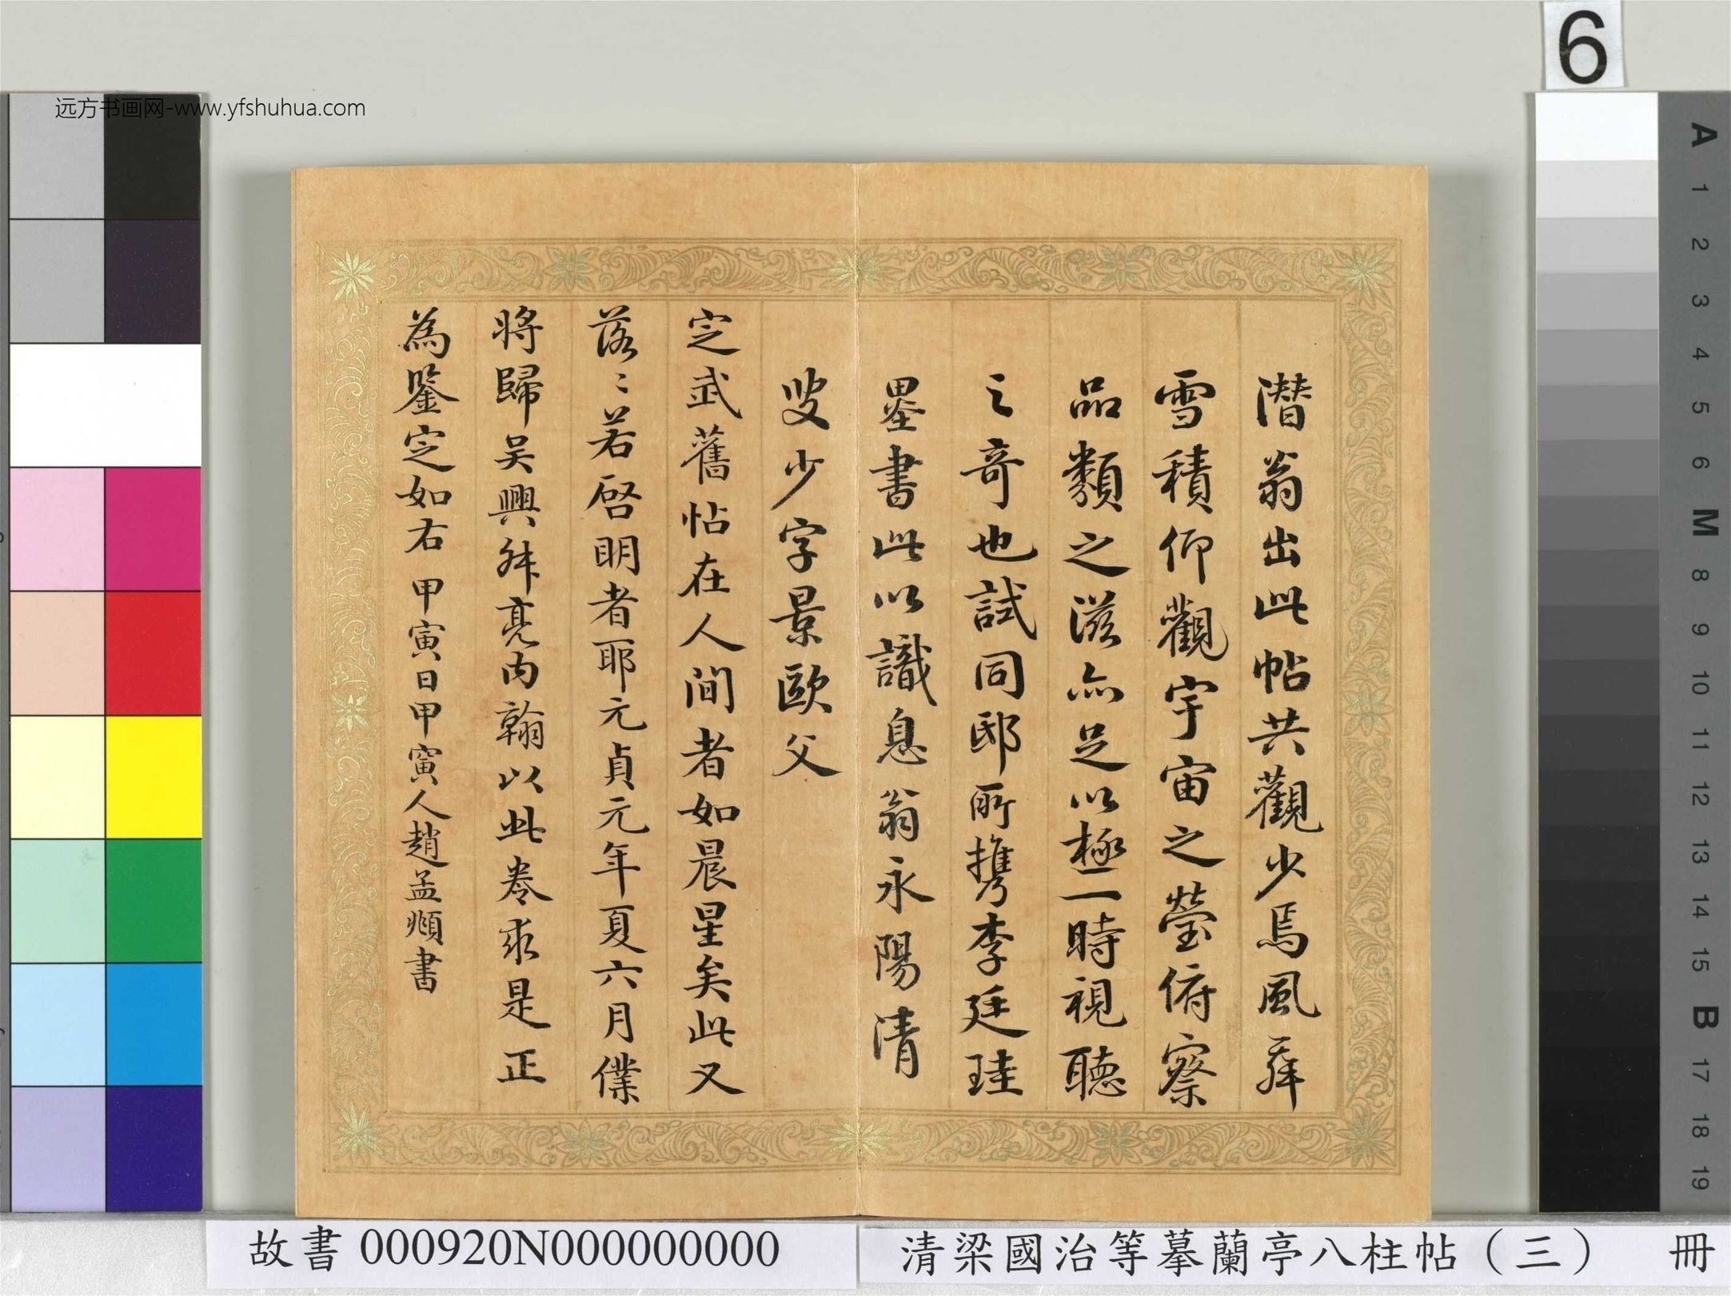 远方书画网-www.yfshuhua.com
6
潛翁出此帖共觀少焉風霁
雪積仰觀宇宙之瑩俯察
品類之滋亦足以極一時視聽
之奇也試同邸所攜李廷珪
墨書此以識息翁永陽清
叟少字景歐父
定武舊帖在人間者如晨星矣此又
落〻若啓明者耶元貞元年夏六月僕
將歸吴興舜亮内翰以此卷求是正
為鑒定如右甲寅日甲寅人趙孟頫書
A
1
2
3
4
5
6
M
8
9
10
11
12
13
14
15
B
17
18
19
故書000920N000000000
清梁國治等摹蘭亭八柱帖（三） 冊